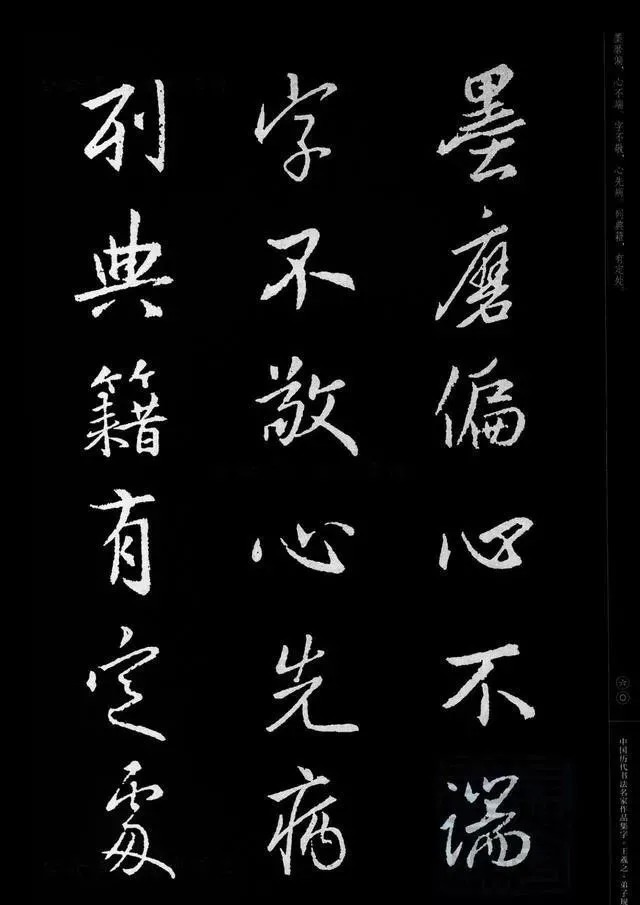 墨磨偏心不端
字不敬心先病
列典籍有定處
墨磨偏，心不端。字不敬，心先病。列典籍，有定处。
六〇
中国历代书法名家作品集字·王羲之·弟子规